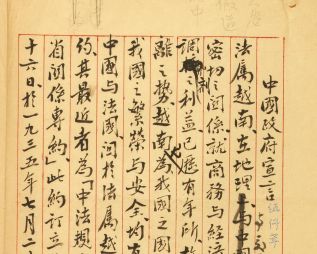 中國政府宣言
法屬越南在地理
密切之關係就商務与經濟
調劑之利益已歷有年所故
離之勢越南為我國之國
我國之繁榮与安全均有
中國与法國關於法屬越
約其最近者為「中法規
省關係專約」此約訂立
十六日於一九三五年七月二